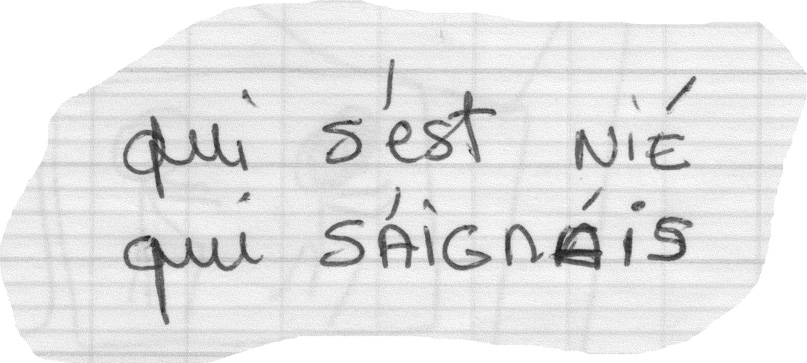 qui s'est NIÉ
qui SÁIGNÁIS